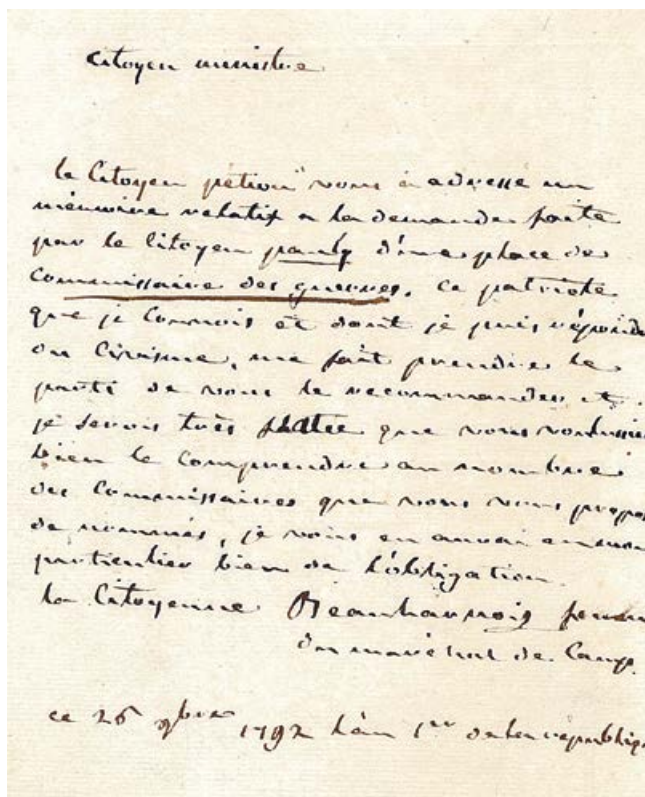 Citoyen ministre
le Citoyen pétion vous a adressé un
mémoire relatif a la demande faite
par le Citoyen pauly d'une place de
Commissaire des guerres. Ce patriote
que je Connois et dont je puis répondre
du Civisme, me fait prendre le
parti de vous le recommander et
je serois très flattée que vous voulussiez
bien le Comprendre au nombre
des Commissaires que vous vous propos
de nommés, je vous en aurai en mon
particulier bien de l'obligation.
la Citoyenne Beauharnois femm
du maréchal de Camp.
ce 26 9bre 1792 l'an 1er de la républiq